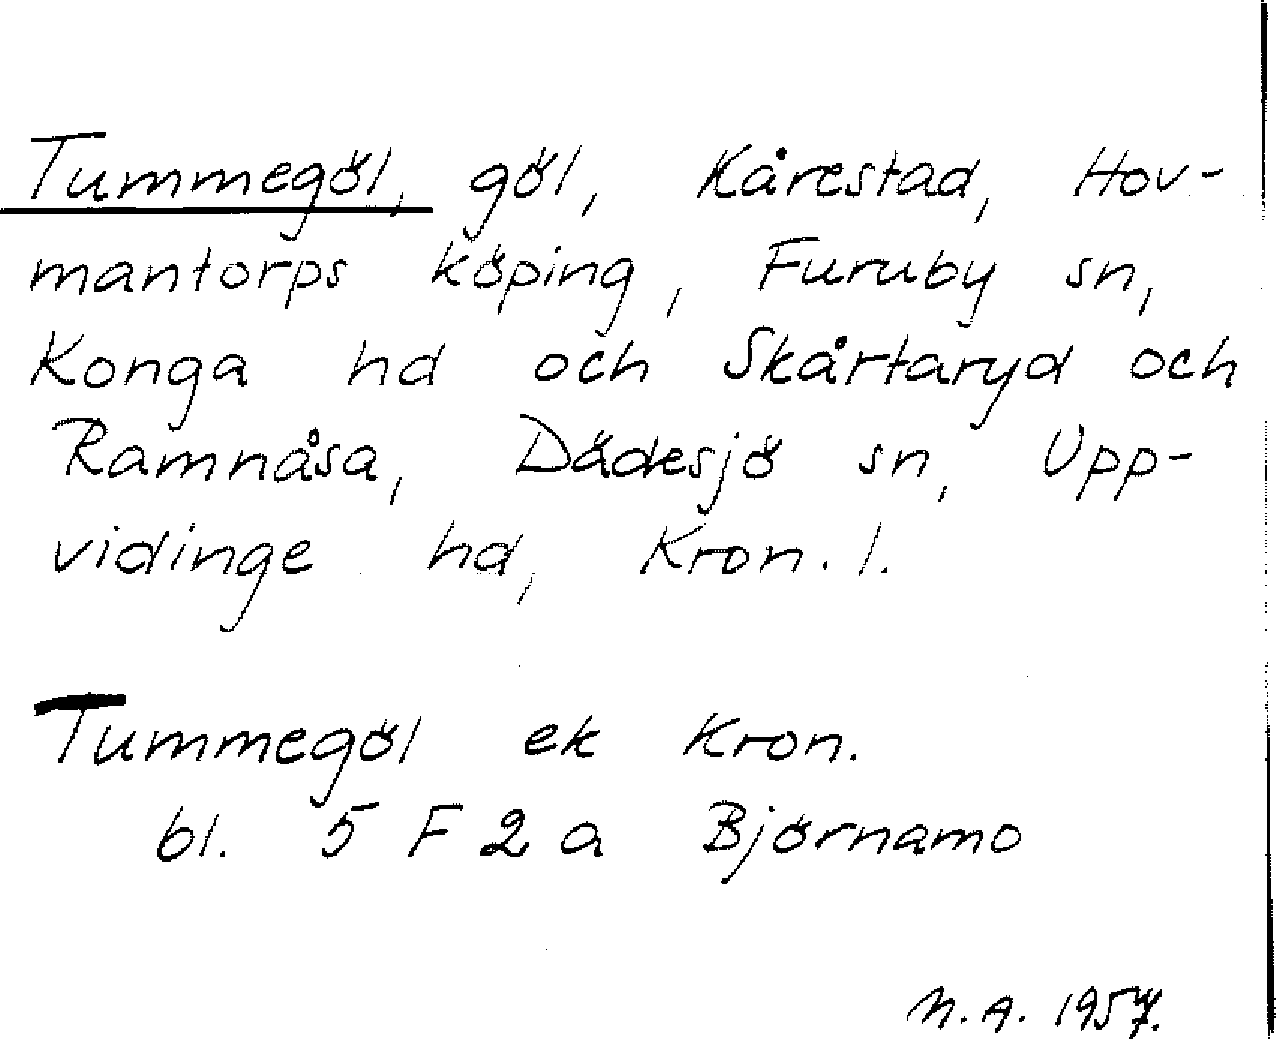 Tummegöl, göl, Kårestad, Hov-
mantorps köping, Furuby sn,
Konga hd och Skårtaryd och
Ramnåsa, Dädesjö sn, Upp-
vidinge hd, Kron. l.
Tummegöl ek Kron.
bl. 5 F 2 a Björnamo
N. A. 1957.